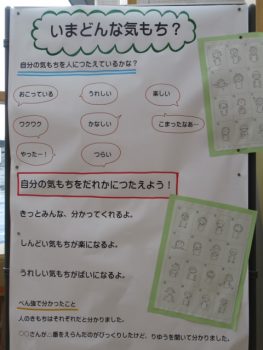 いまどんな気もち？
自分の気もちを人につたえているかな？
おこっている
うれしい
楽しい
ワクワク
かなしい
こまったなあ…
やったー！
つらい
自分の気もちをだれかにつたえよう！
きっとみんな、分かってくれるよ。
しんどい気もちが楽になるよ。
うれしい気もちがばいになるよ。
べん強で分かったこと
人のきもちはそれぞれだと分かりました。
○○さんが、番をえらんだのがびっくりしたけど、りゆうを聞いて分かりました。